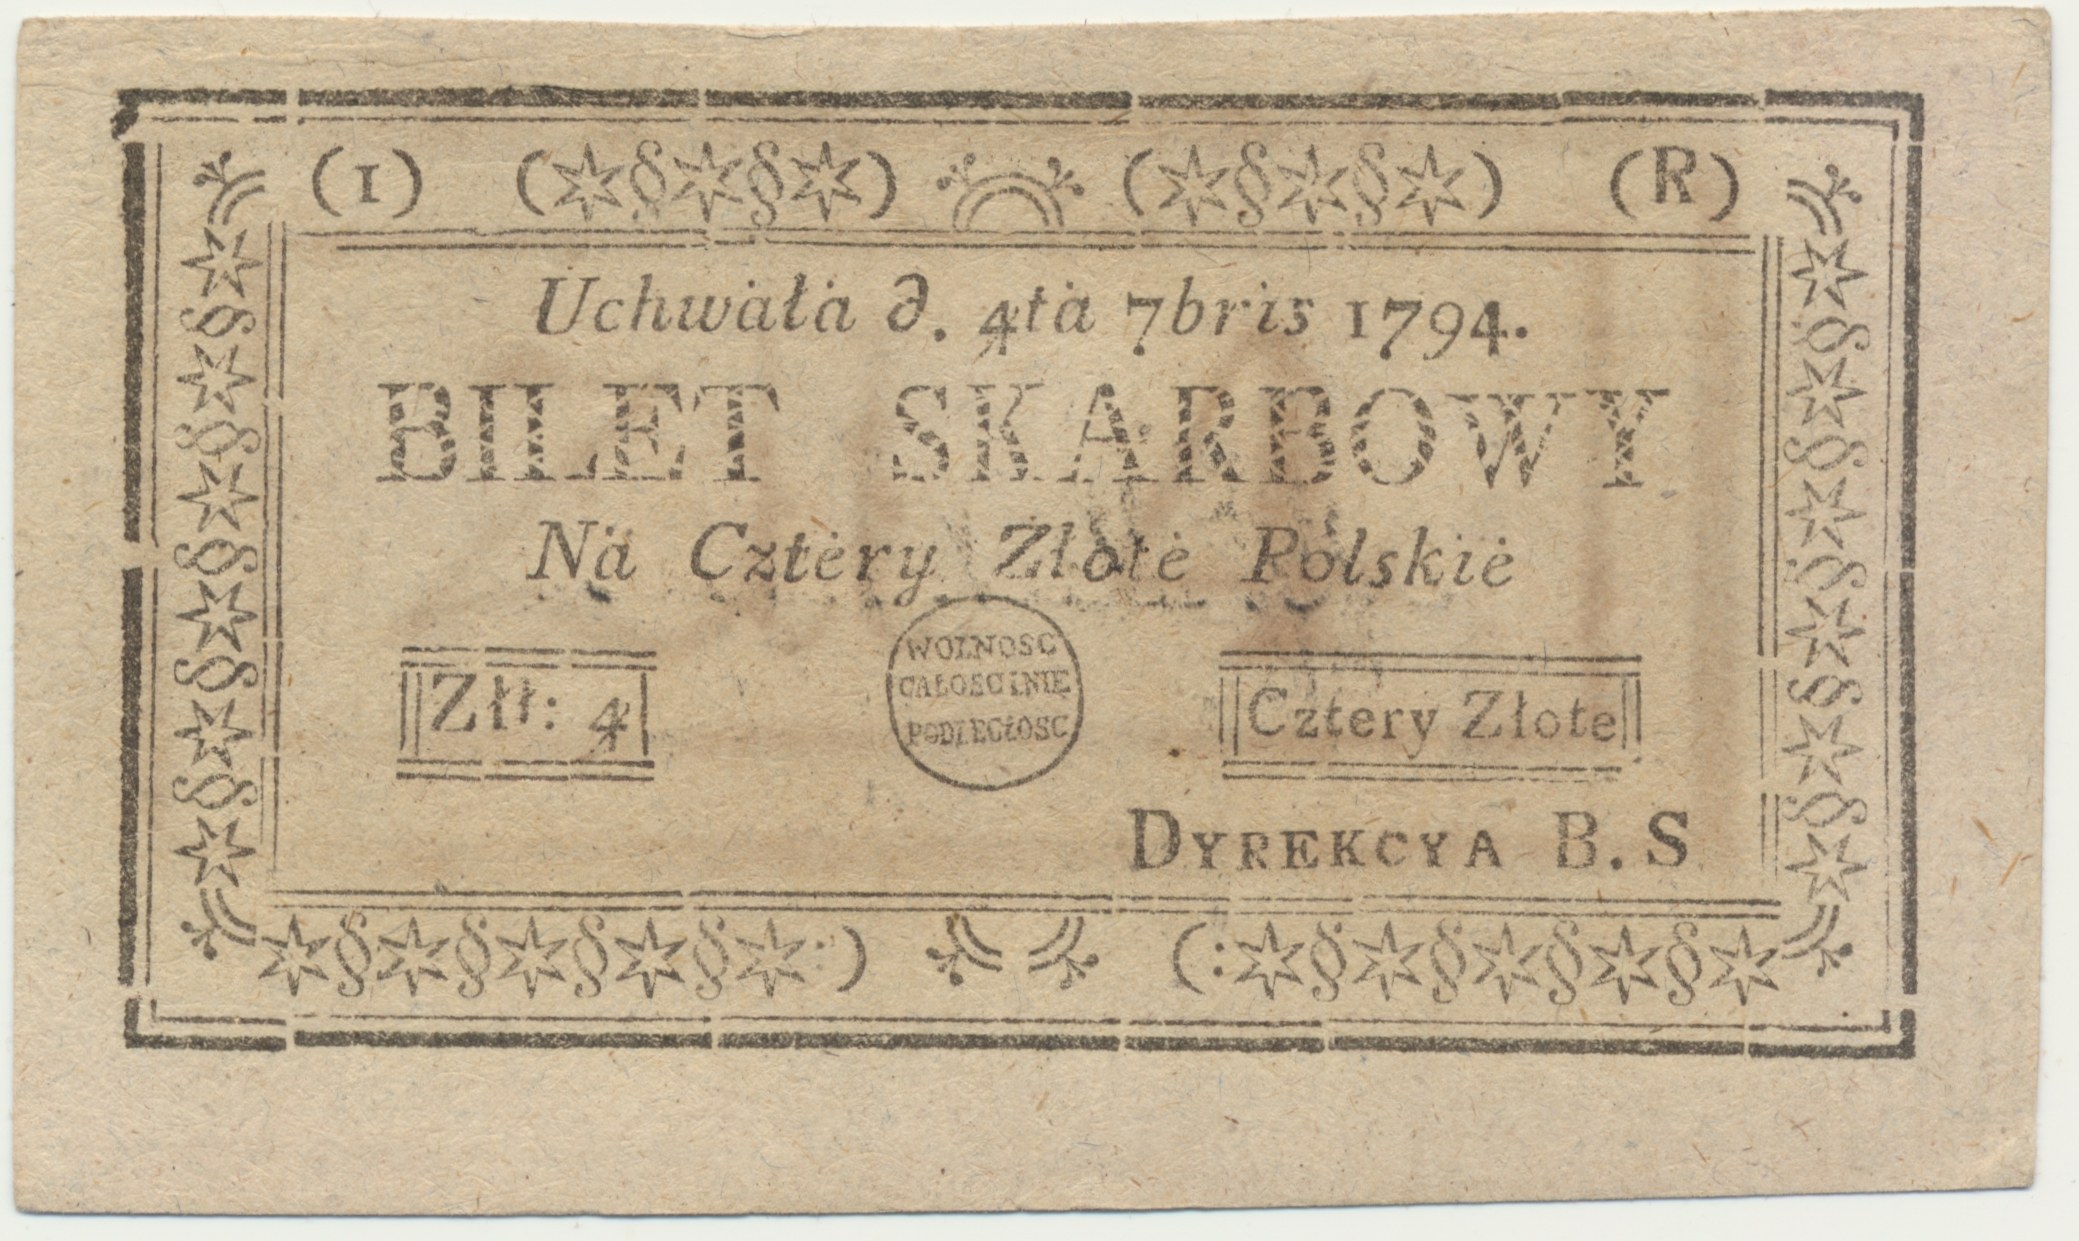 (1) (R)
Uchwała d. 4ta 7bris 1794.
BILET SKARBOWY
Na Cztery Złote Polskie
WOLNOSC
CAŁOSC INIE
PODLEGŁOSC
Złł: 4
Cztery Złote
DYREKCYA B. S